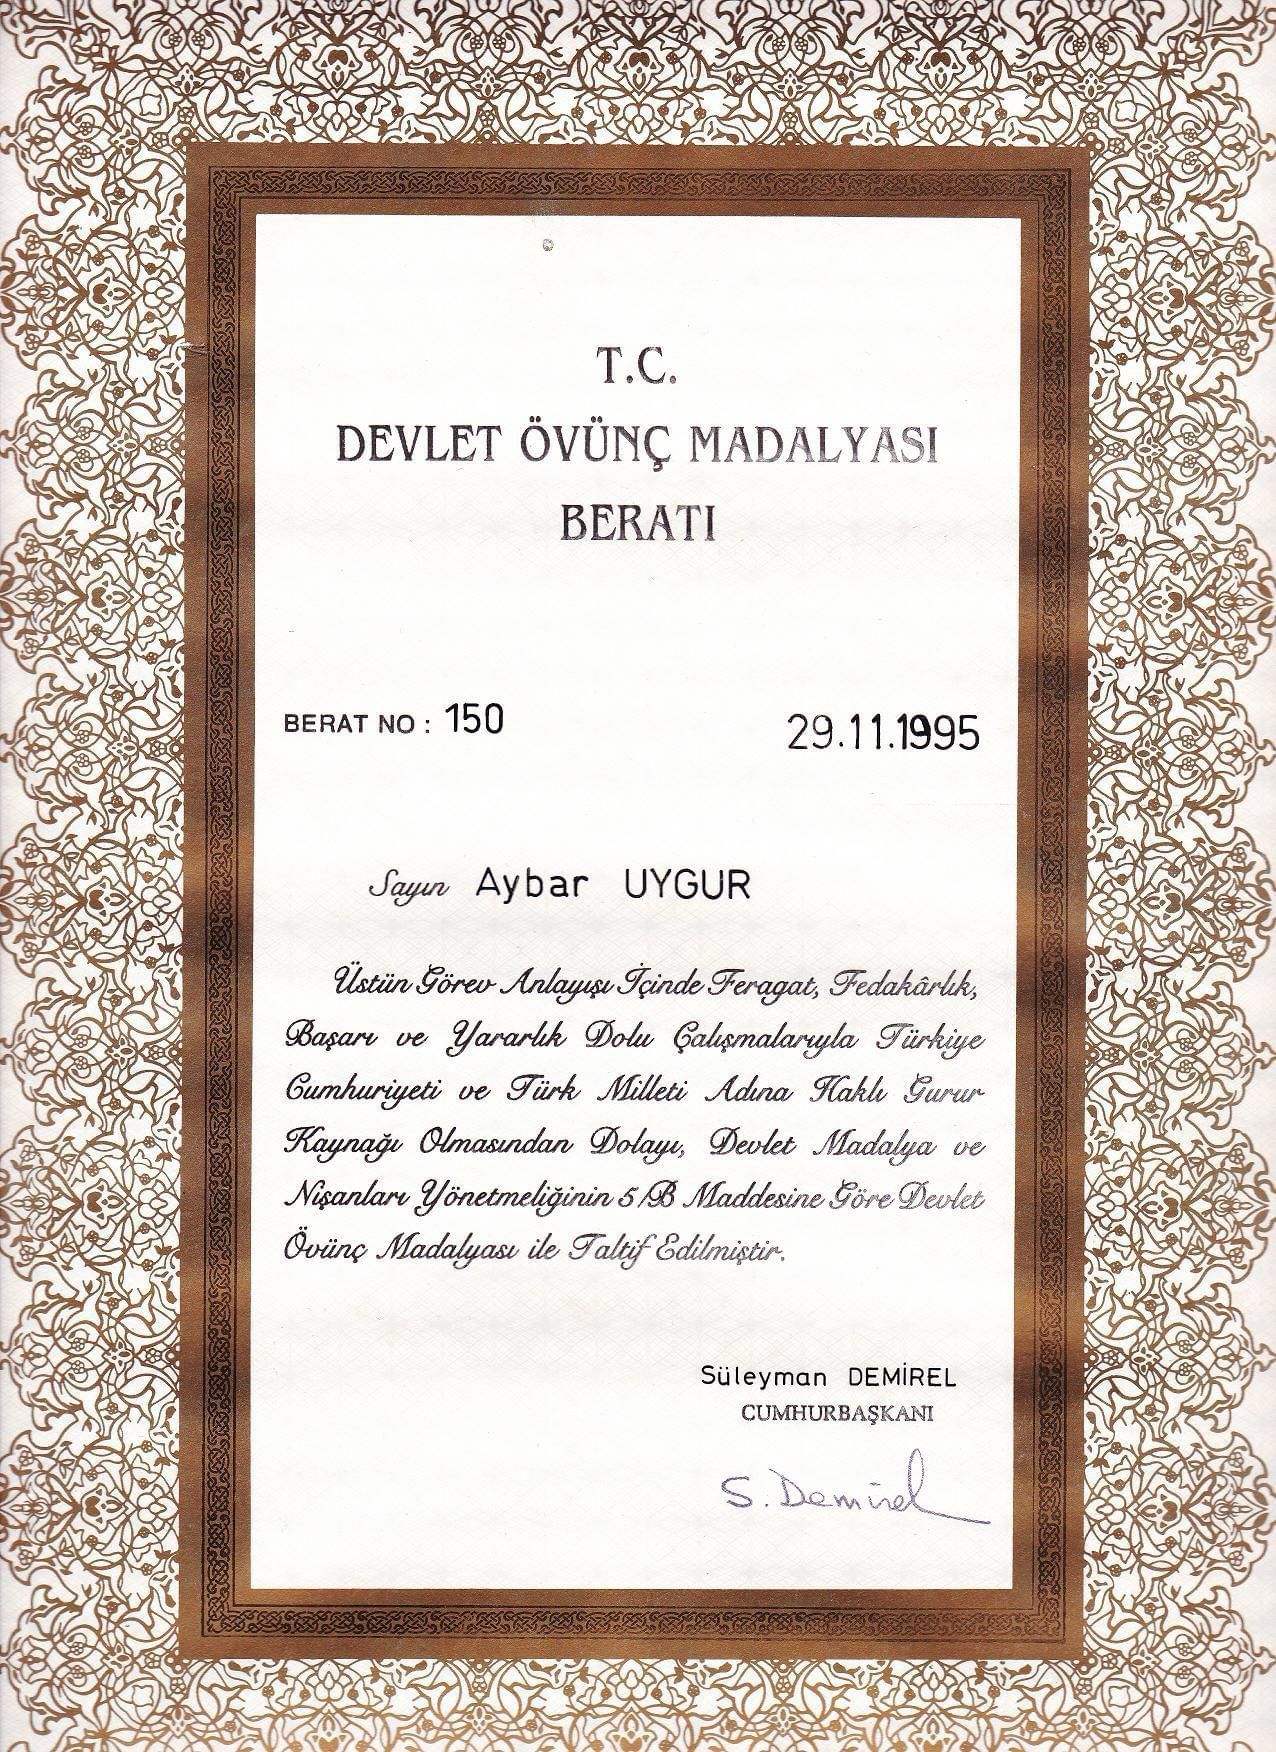 T.C.
DEVLET ÖVÜNÇ MADALYASI
BERATI
BERAT NO : 150
29.11.1995
Sayın Aybar UYGUR
Üstün Görev Anlayışı İçinde Feragat, Fedakârlık,
Başarı ve Yararlık Dolu Çalışmalarıyla Türkiye
Cumhuriyeti ve Türk Milleti Adına Haklı Gurur
Kaynağı Olmasından Dolayı, Devlet Madalya ve
Nişanları Yönetmeliğinin 5/B Maddesine Göre Devlet
Övünç Madalyası ile Taltif Edilmiştir.
Süleyman DEMİREL
CUMHURBAŞKANI
S. Demirel